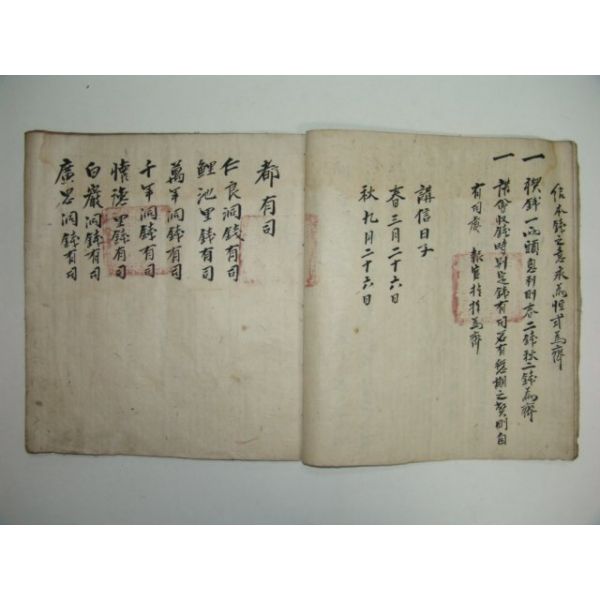 信木錢之意永爲恒式爲齊
一 稧錢一兩頭息利則春二錢秋二錢爲齊
一 諸俗收錢時別定錢有司若有愆期之獘則自
有司處 報官推捉爲齊
講信日子
春三月二十六日
秋九月二十六日
都有司
仁良洞錢有司
鯉池里錢有司
萬年洞錢有司
千年洞錢有司
懷德里錢有司
白巖洞錢有司
廣思洞錢有司